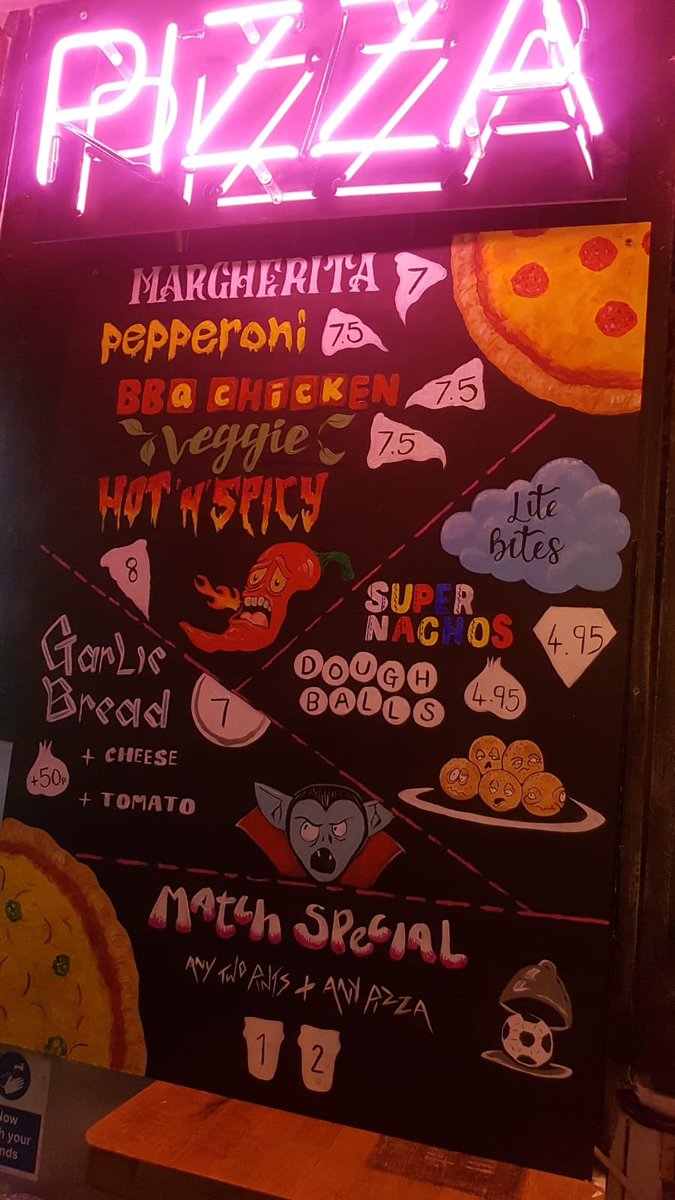 PIZZA
MARGHERITA 7
pepperoni 7.5
BBQ CHiCKEN 7.5
Veggie 7.5
HOT 'N' SPICY
8
Lite
Bites
SUPER
NACHOS 4.95
DOUGH
BALLS 4.95
GarLic
Bread 7
+50p
+ CHEESE
+ TOMATO
MAtcH SPeciAL
ANY TWO PINTS + ANY PIZZA
1 2
Now
your